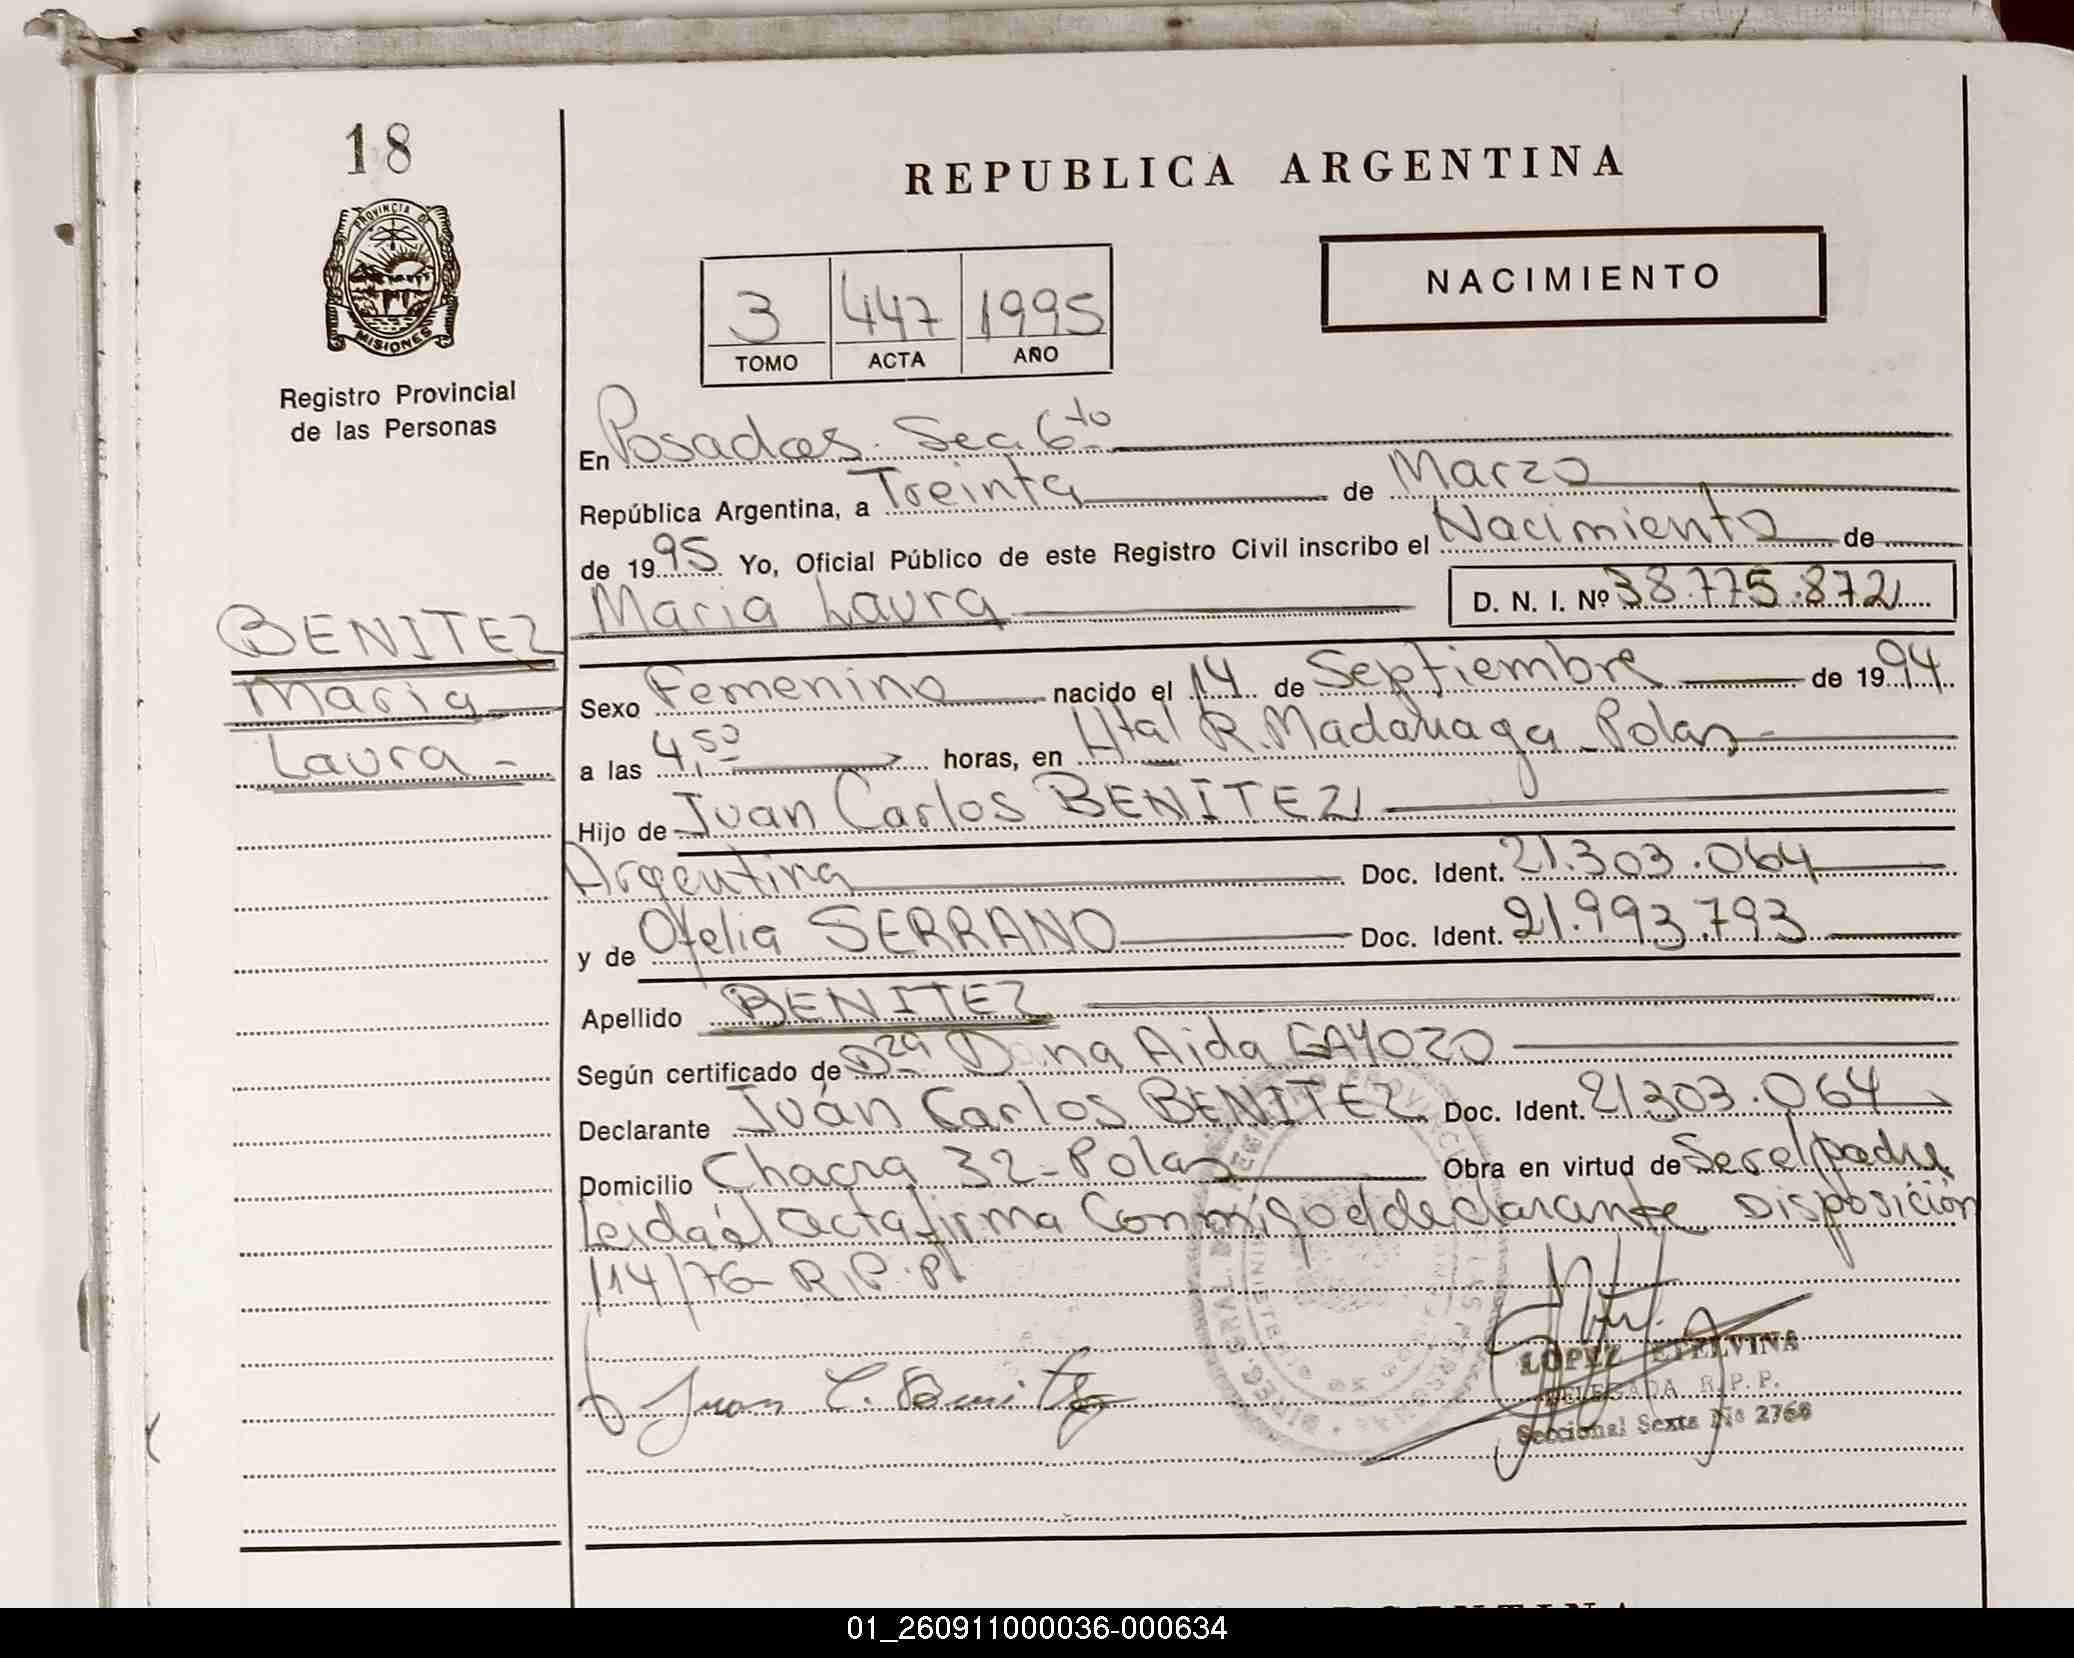 18
PROVINCIA DE
MISIONES
Registro Provincial
de las Personas
BENITEZ
Maria
Laura -
REPUBLICA ARGENTINA
NACIMIENTO
3 447 1995
TOMO ACTA AÑO
En Posadas. Sec. 6to
República Argentina, a Treinta de Marzo
de 1995 Yo, Oficial Público de este Registro Civil inscribo el Nacimiento de
Maria Laura D. N. I. Nº 38.775.872
Sexo Femenino nacido el 14 de Septiembre de 1994
a las 4,50 horas, en Htal R. Madariaga - Pdas -
Hijo de Juan Carlos BENITEZ
Argentina Doc. Ident. 21.303.064
y de Ofelia SERRANO Doc. Ident. 21.993.793
Apellido BENITEZ
Según certificado de Dra Dana Aida GAYOZO
Declarante Juán Carlos BENITEZ Doc. Ident. 21303.064
Domicilio Chacra 32 - Pdas Obra en virtud de Ser el padre
Leida el acta firma Conmigo el declarante Disposición
114/76 - R.P.P.
Juan C. Benitez
LOPEZ ETELVINA
DELEGADA R.P.P.
Seccional Sexta Nº 2768
01_260911000036-000634